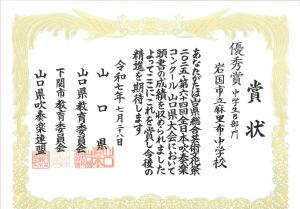 賞状
優秀賞 中学生B部門
岩国市立麻里布中学校
あなたがたは山口県総合芸術文化祭
2025・第六十四回全日本吹奏楽
コンクール山口県大会において
頭書の成績を収められました
よってここにこれを賞し今後の
精進を期待します
令和七年七月二十八日
山口県
山口県教育委員会
下関市教育委員会
山口県吹奏楽連盟